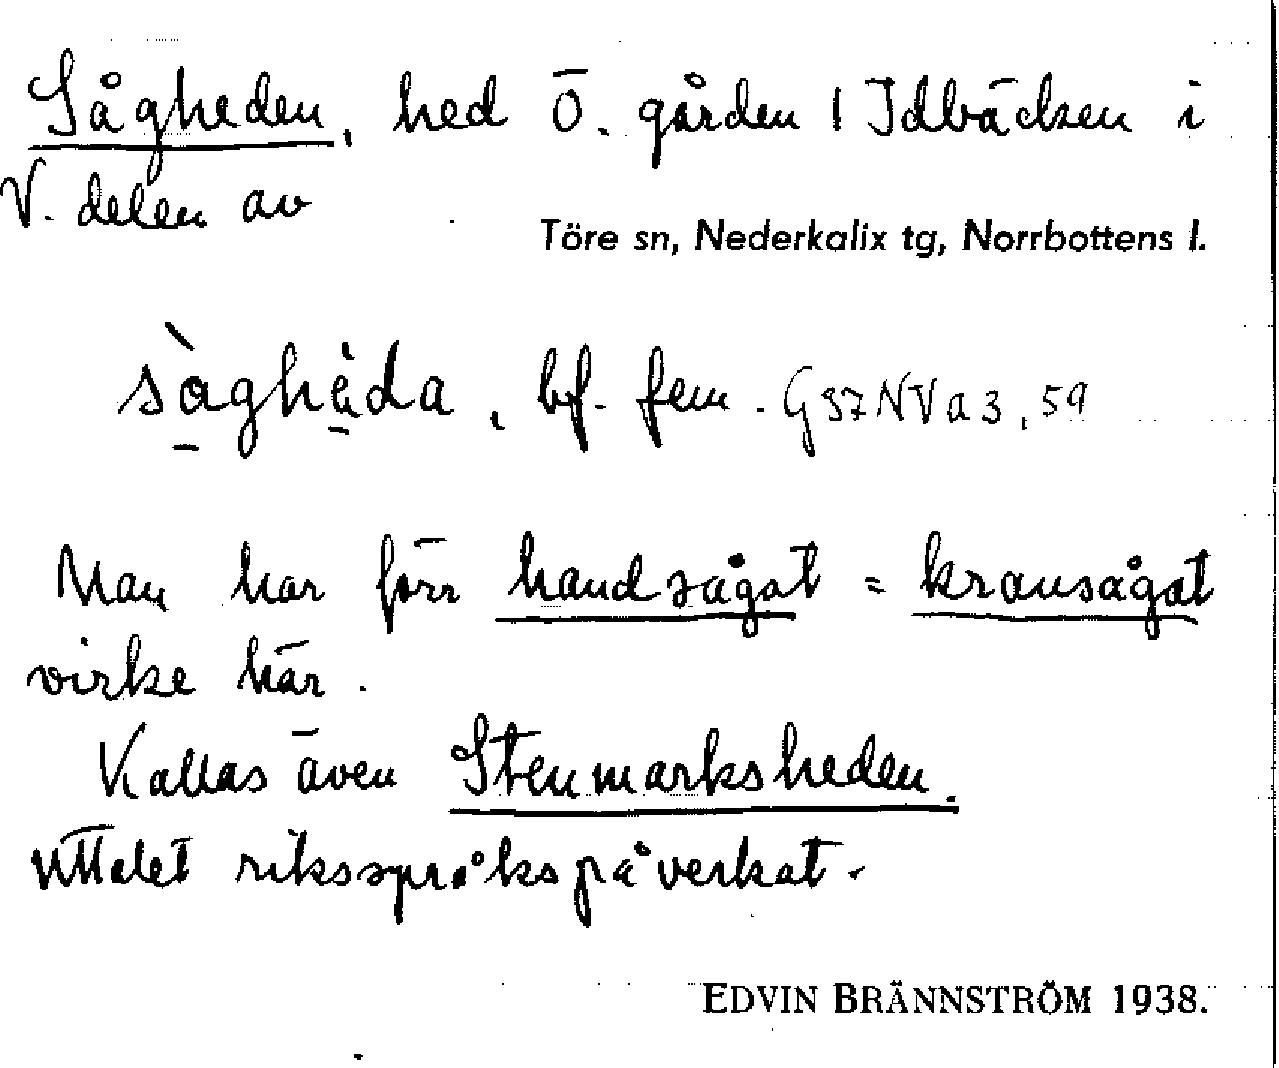 Sågheden, hed Ö. gården 1 Idbäcken i
V. delen av
Töre sn, Nederkalix tg, Norrbottens l.
sàghèda, bf. fem. G 37 NV a 3, 59
Man har förr handsågat = kransågat
virke här.
Kallas även Stenmarksheden.
Uttalet riksspråkspåverkat.
EDVIN BRÄNNSTRÖM 1938.